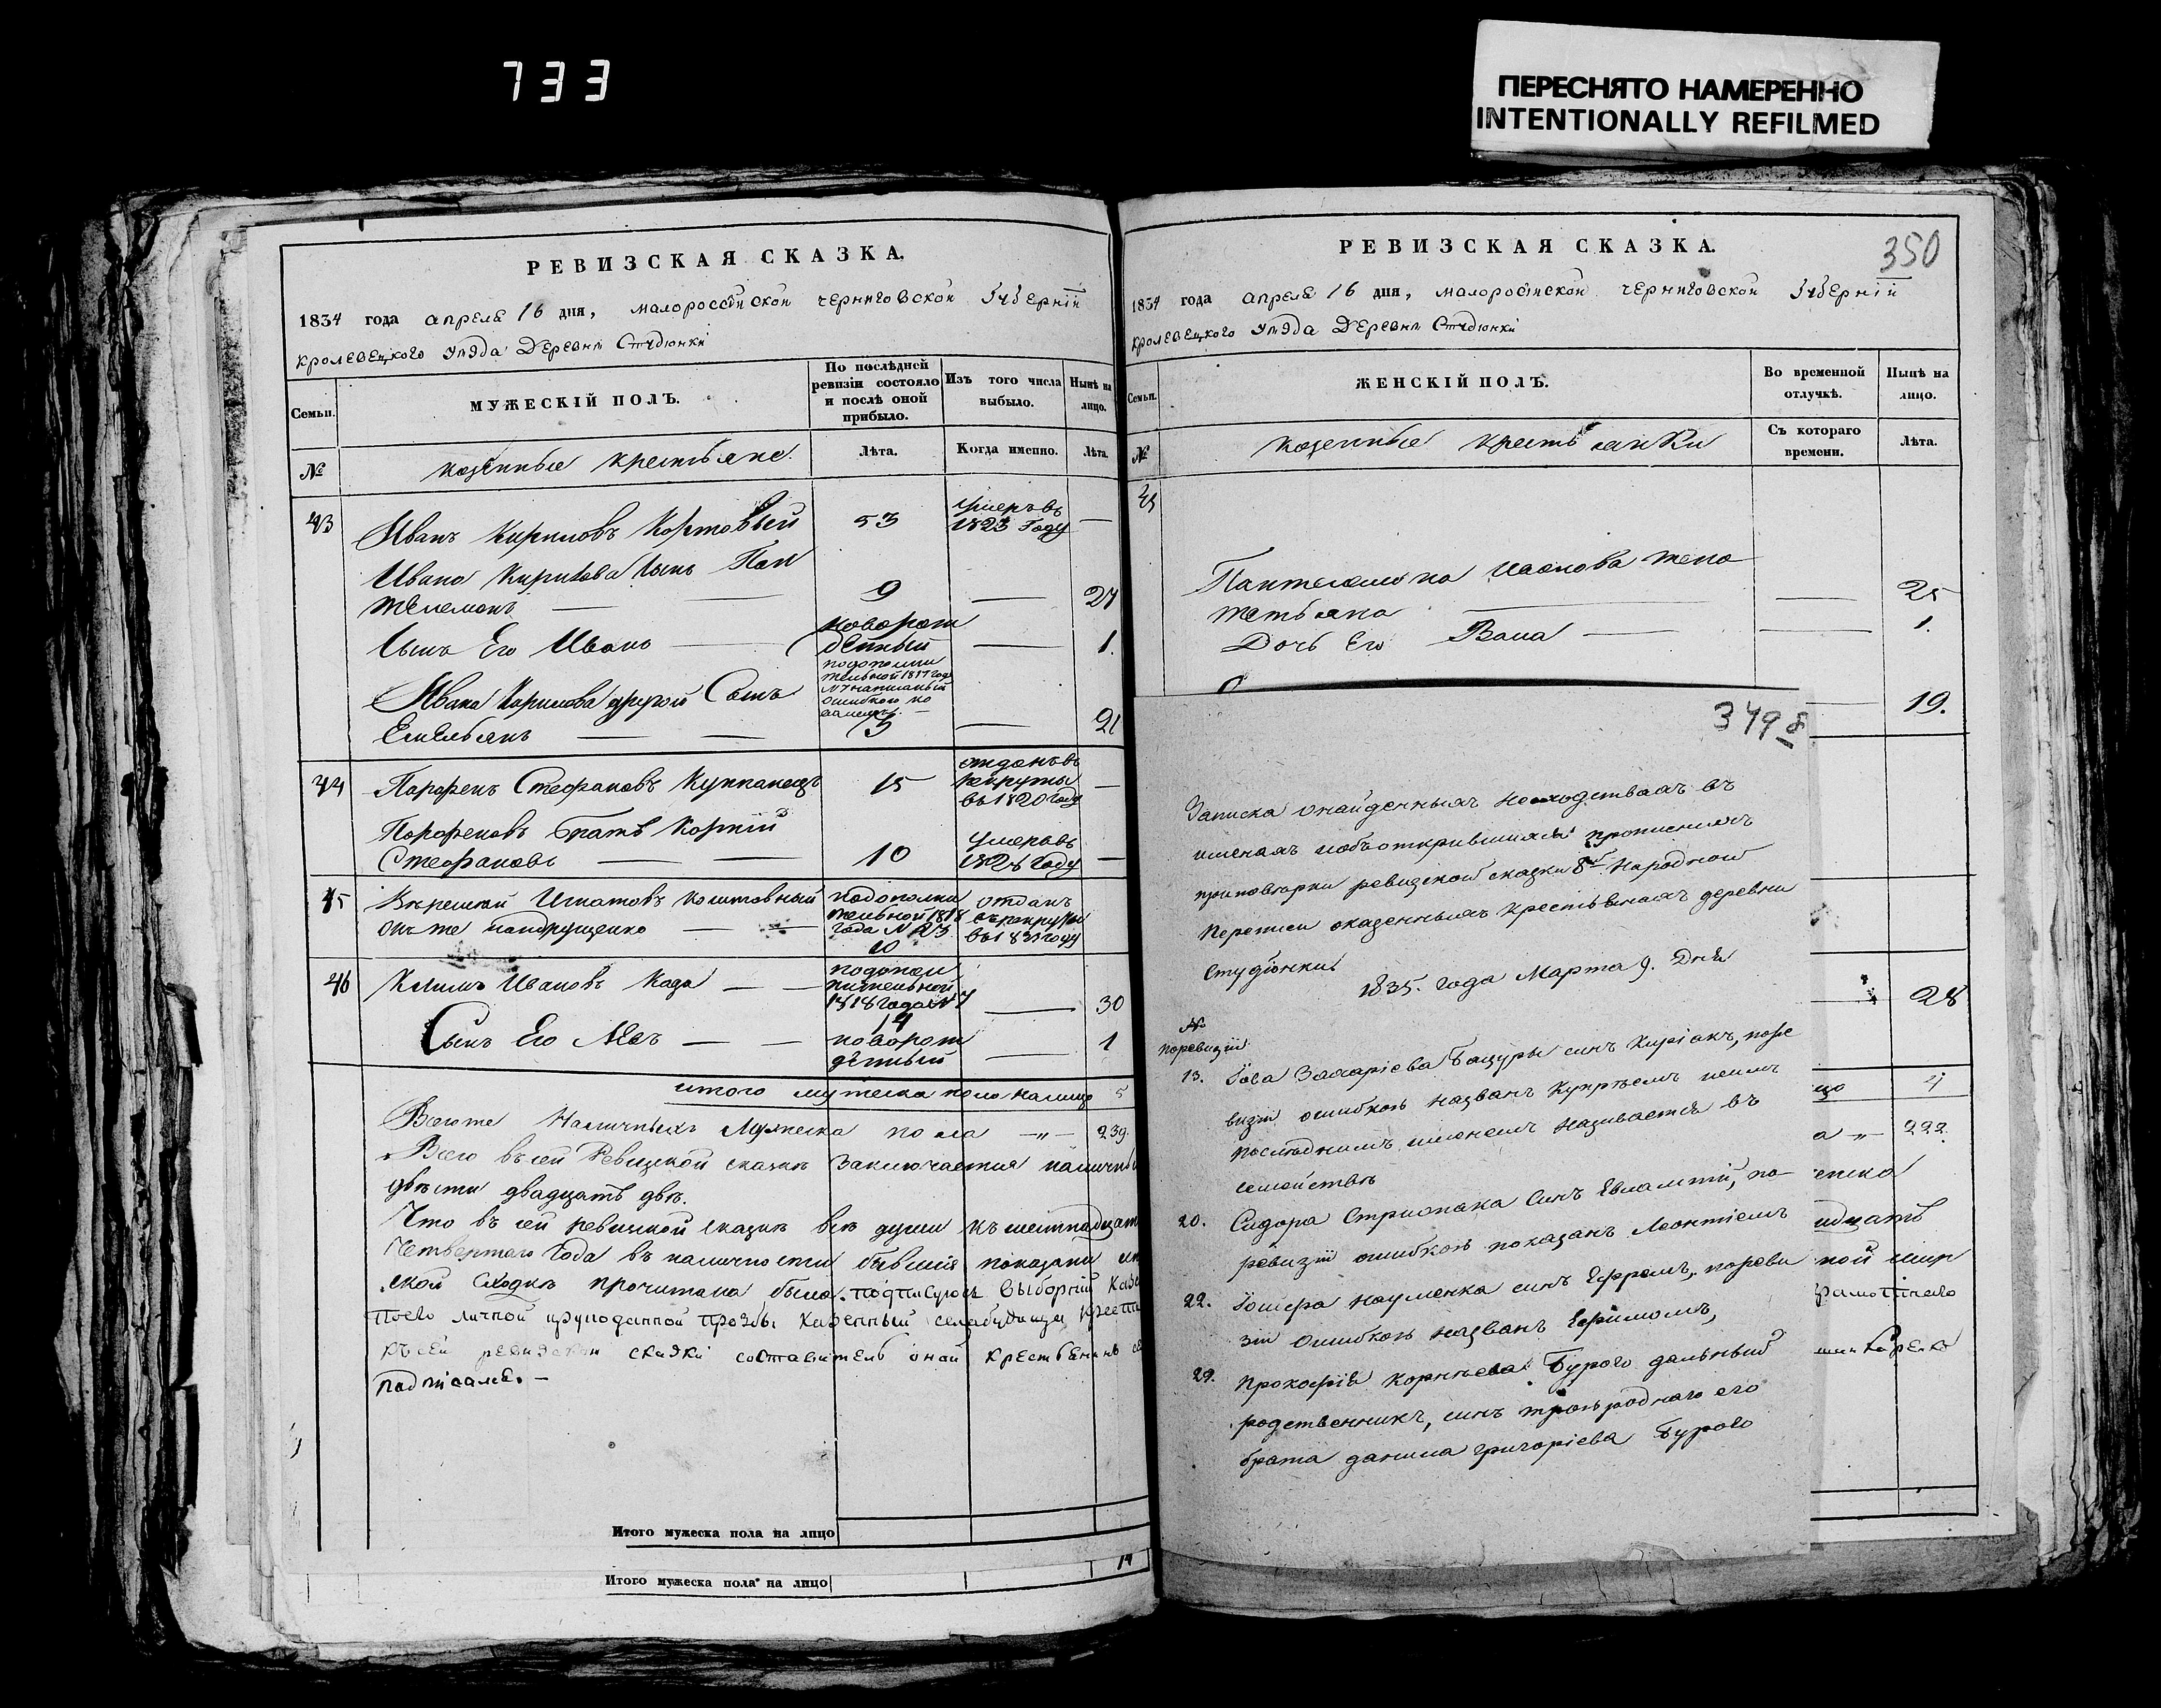 733
ПЕРЕСНЯТО НАМЕРЕННО
INTENTIONALLY REFILMED
РЕВИЗСКАЯ СКАЗКА.
1834 года апреля 16 дня, малороссійской черниговской Губерніи
кролевецкого уѣзда Деревни Студіонки
Семьи.
МУЖЕСКІЙ ПОЛЪ.
По послѣдней ревизіи состояло и послѣ оной прибыло.
Изъ того числа выбыло.
Нынѣ на лицо.
№
казенные крестьяне.
Лѣта.
Когда именно.
Лѣта.
43
Иванъ Кириловъ Кортовый
53
умеръ въ
1823 Году
—
Ивана Кирилова сынъ Пан
телемонъ — —
9
—
24
Сынъ Его Иванъ —
новорож
денный
—
1.
Ивана Кирилова другой Сынъ
Емельянъ — —
подополни
тельной 1817 года
№7 написанный
ошибкою
3
—
21
44
Парфенъ Стефановъ Куппанецъ
15
отданъ въ
рекруты
въ 1820 году
—
Парфеновъ братъ Корній
Стефановъ — —
10
умеръ въ
1826 Году
—
45
Игнатовъ Колтовный
онъ же —
подополни
тельной 1818
года № 23
10
отданъ
въ рекруты
въ 1831 году
46
Климъ Ивановъ Каца — —
подопол
нительной
1818 года №7
14
—
30
Сынъ Его Левъ — —
новорож
денный
—
1
итого мужеска пола налицо 5
Всего же Наличныхъ Мужеска пола —„— 239.
Всего въ сей Ревизской сказкѣ Заключается наличны
двѣсти двадцать двѣ.
Что въ сей ревизской сказкѣ всѣ души къ шестнадцат
Четвертаго Года въ наличности бывшія показаны
ской Сходкѣ прочитана была. подписуюсь Выборній Каз
его личной прозбы Казенный крестя
къ сей ревизской сказки составитель оной крестьянинъ
Итого мужеска пола на лицо
Итого мужеска пола на лицо
14
РЕВИЗСКАЯ СКАЗКА.
350
1834 года апреля 16 дня, малоросійской черниговской Губерніи
кролевецкого уѣзда Деревни Студіонки
Семьи.
ЖЕНСКІЙ ПОЛЪ.
Во временной отлучкѣ.
Нынѣ на лицо.
№
казенные крестьянки
Съ котораго времени.
Лѣта.
Пантелемона Иванова жена
Татьяна —
—
25
Дочь Его —
—
1.
— 19.
349
Записка онайденныхъ несходствахъ въ
именахъ иобъоткрившихся прописнихъ
приповѣрки ревизской сказки 8й Народной
Переписи оказенныхъ крестьянахъ деревни
Студіонки
1835. года Марта 9. Дня
№
поревизіи
13. Іова Захаріева Бацуры синъ Киріакъ, поре
визіи ошибкою названъ Купріемъ
послѣднимъ именемъ називается въ
семействѣ
20. Сидора синъ Евлампій, по-
ревизіи ошибкою показанъ Леонтіемъ
22. Науменка синъ Ефремъ, пореви
зіи ошибкою названъ Ефимомъ,
29. Прокофія Корнѣева Бурого дальный
родственникъ, синъ троюродного его
брата данила григоріева Бурого
28
цо 4
а —„— 222.